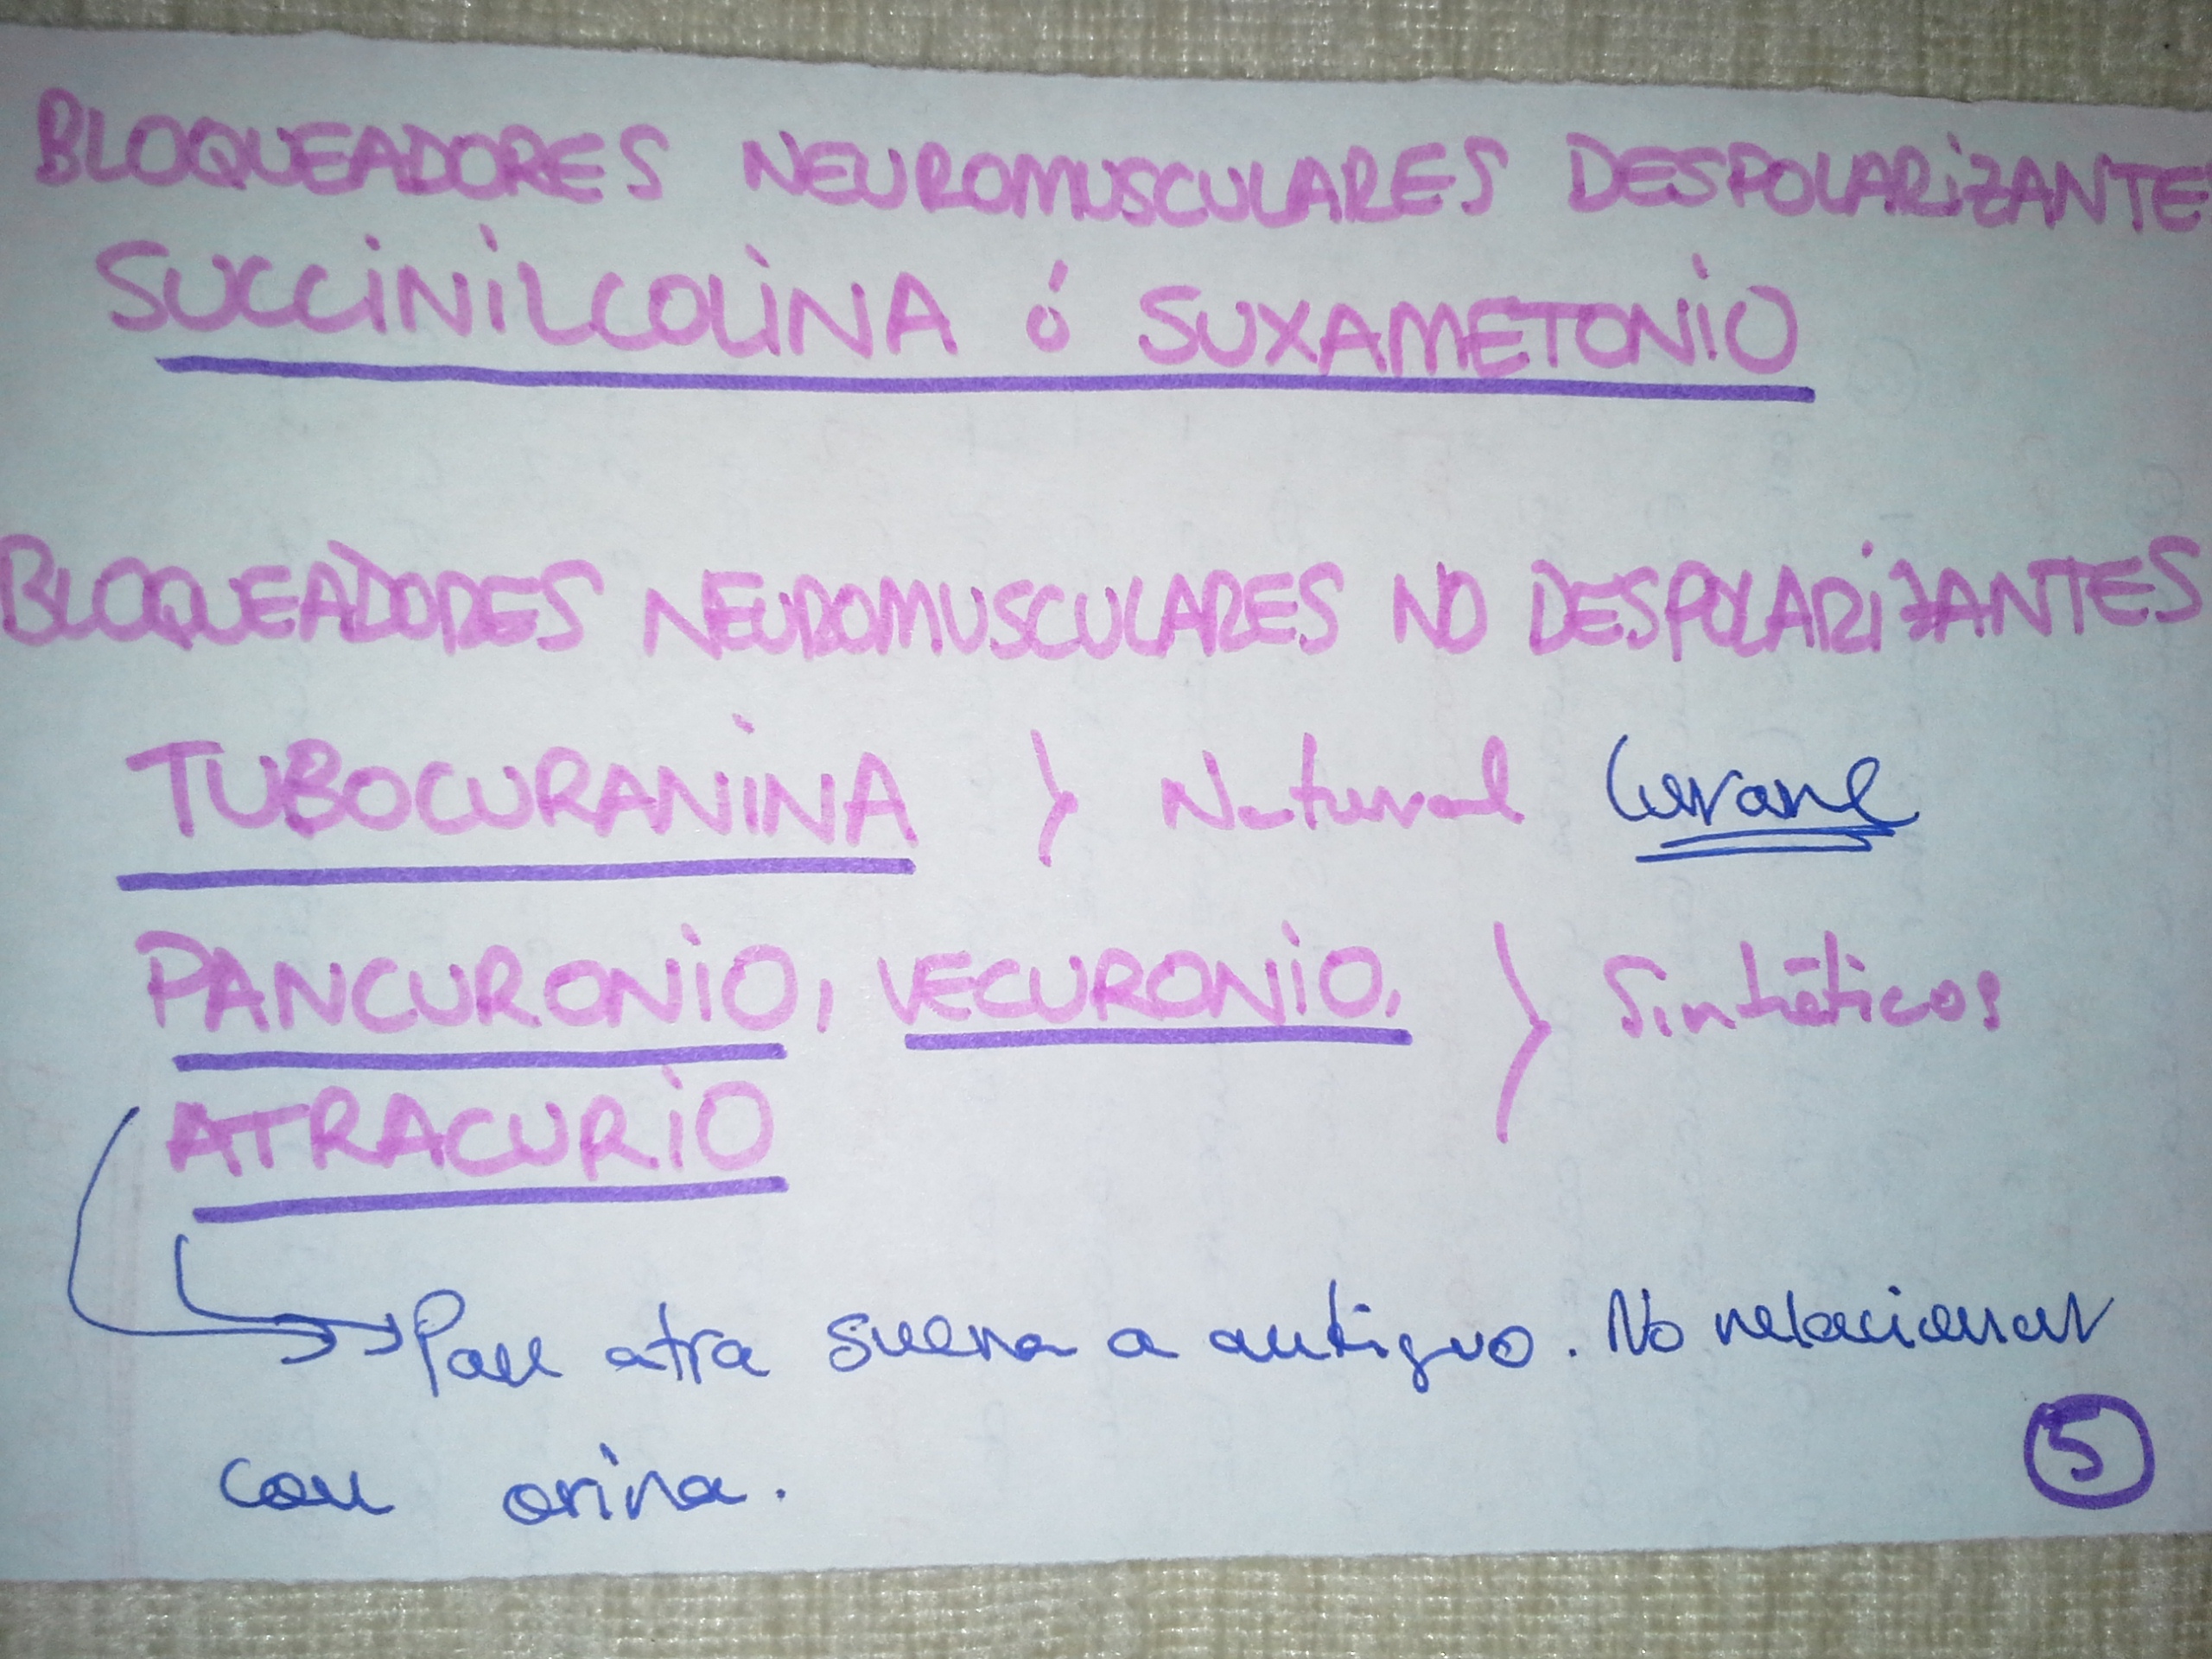 BLOQUEADORES NEUROMUSCULARES DESPOLARIZANTES
SUCCINILCOLINA ó SUXAMETONIO
BLOQUEADORES NEUROMUSCULARES NO DESPOLARIZANTES
TUBOCURANINA } Natural Curare
PANCURONIO, VECURONIO, } Sintéticos
ATRACURIO
Pan atra suena a antiguo. No relacionar
con orina.
5